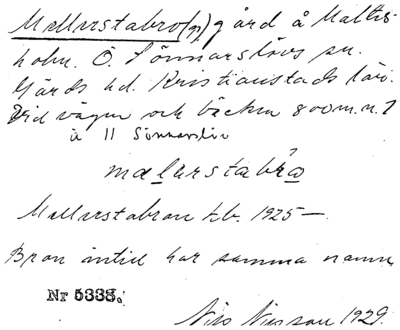 Mellerstabro(n) gård å Maltes-
holm. Ö. Sönnarslövs sn.
Gärds hd. Kristianstads län.
Vid vägen och bäcken 800 m. n.
å 11 Sönnarslöv
Mellerstabron tlb. 1925 —
Bron intill har samma namn
Nr 5333.
Nils Nilsson 1929.